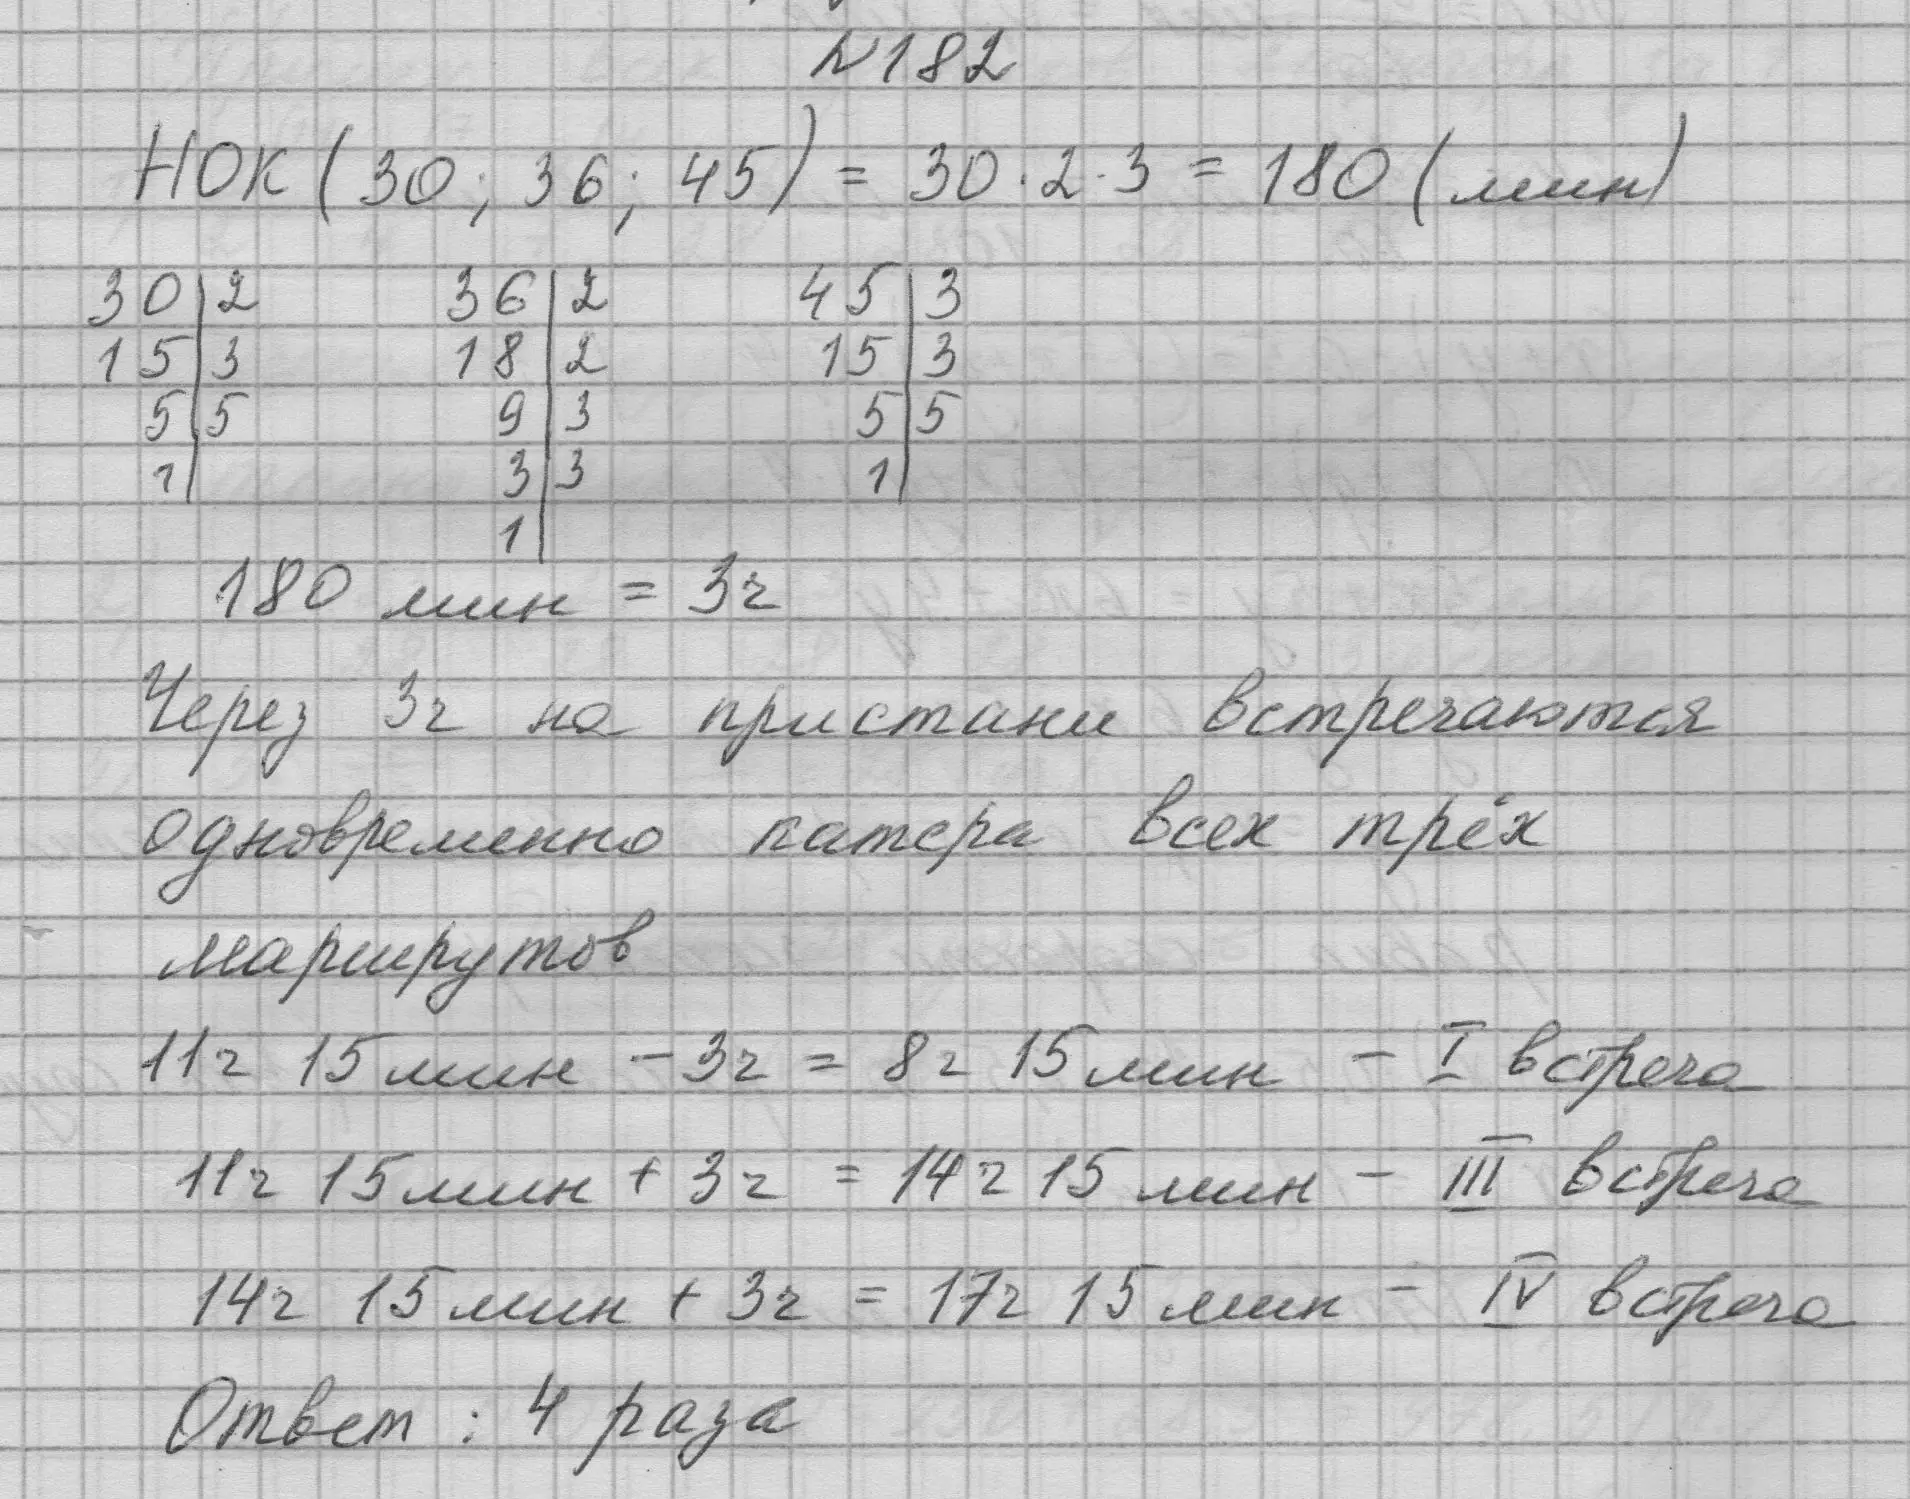 N182
НОК (30; 36; 45) = 30 · 2 · 3 = 180 (мин)
30 | 2 36 | 2 45 | 3
15 | 3 18 | 2 15 | 3
5 | 5 9 | 3 5 | 5
1 | 3 | 3 1 |
1 |
180 мин = 3ч
Через 3ч на пристани встречаются
одновременно катера всех трёх
маршрутов
11ч 15 мин - 3ч = 8ч 15 мин - I встреча
11ч 15 мин + 3ч = 14ч 15 мин - III встреча
14ч 15 мин + 3ч = 17ч 15 мин - IV встреча
Ответ : 4 раза